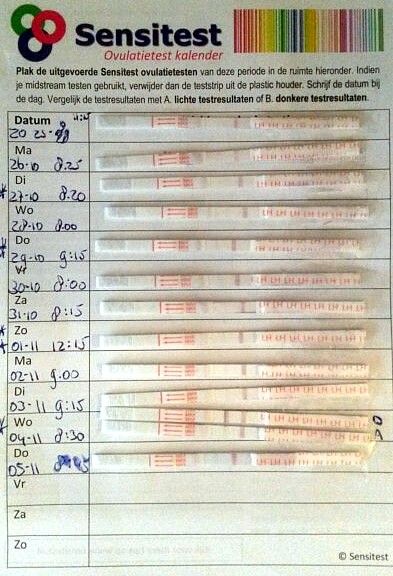 Sensitest
Ovulatietest kalender
Plak de uitgevoerde Sensitest ovulatietesten van deze periode in de ruimte hieronder. Indien
je midstream testen gebruikt, verwijder dan de teststrip uit de plastic houder. Schrijf de datum bij
de dag. Vergelijk de testresultaten met A. lichte testresultaten of B. donkere testresultaten.
Datum
Ma
26-10 8.25
Di
* 27-10 8.20
Wo
28-10 8.00
Do
* 29-10 9:15
Vr
30-10 8:00
Za
31-10 8:15
Zo
* 01-11 12:15
Ma
02-11 9.00
Di
03-11 9:15
Wo
04-11 8:30
Do
05-11
Vr
Za
Zo
© Sensitest